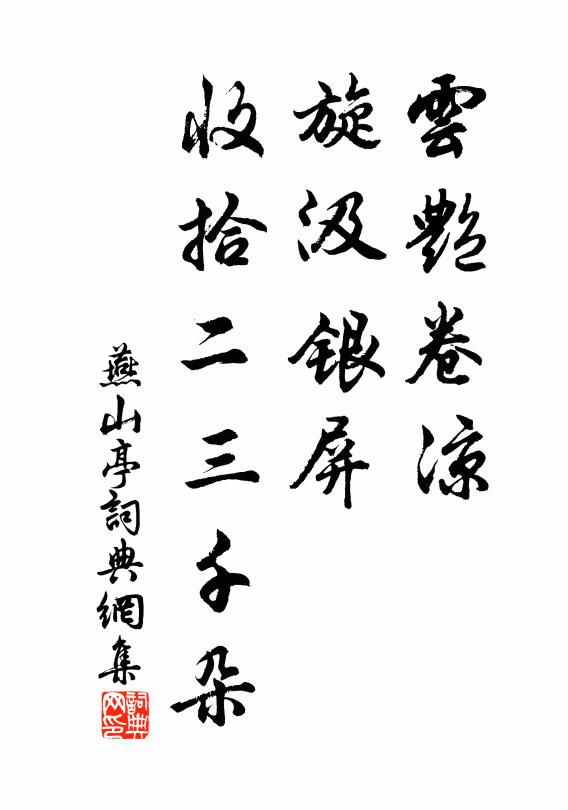 雲艷卷涼
旋汲銀屏
收拾二三千朵
燕山亭詞典網集
詞典网印